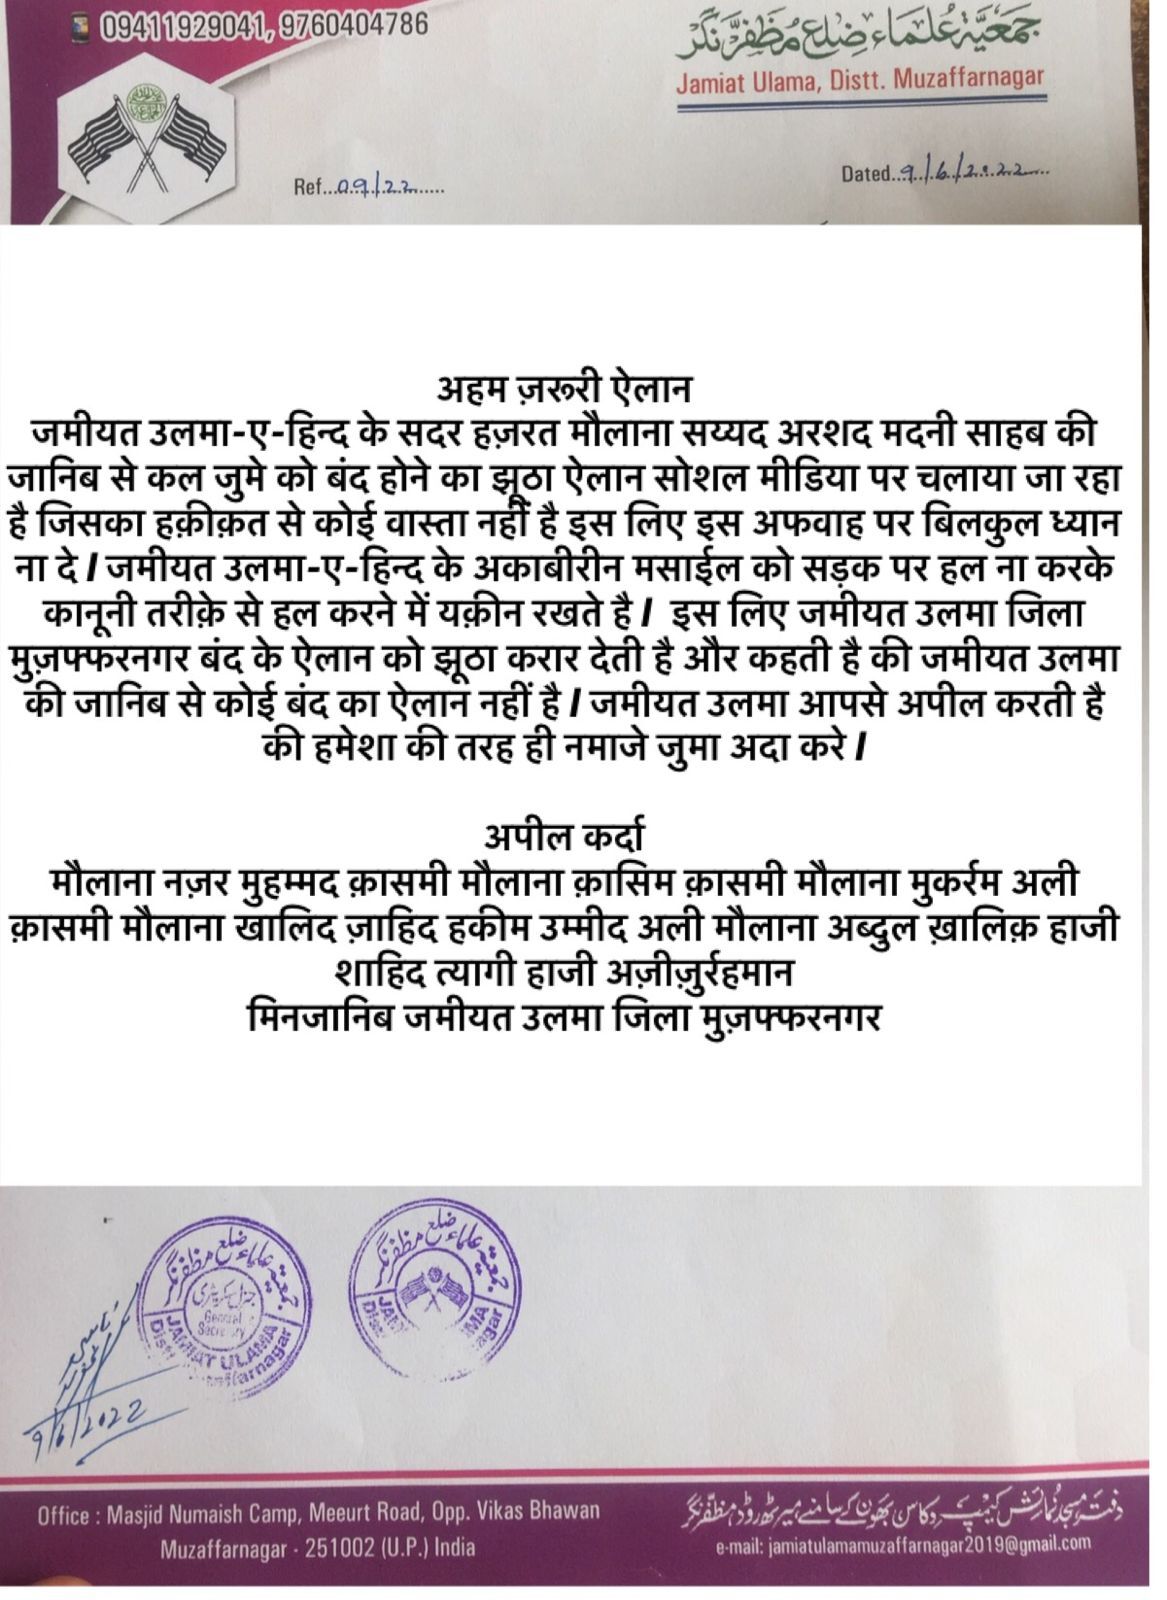 09411929041, 9760404786
جمعیۃ علماء ضلع مظفر نگر
Jamiat Ulama, Distt. Muzaffarnagar
Ref...09/22......
Dated..9./.6./2022....
अहम ज़रूरी ऐलान
जमीयत उलमा-ए-हिन्द के सदर हज़रत मौलाना सय्यद अरशद मदनी साहब की
जानिब से कल जुमे को बंद होने का झूठा ऐलान सोशल मीडिया पर चलाया जा रहा
है जिसका हक़ीक़त से कोई वास्ता नहीं है इस लिए इस अफवाह पर बिलकुल ध्यान
ना दे I जमीयत उलमा-ए-हिन्द के अकाबीरीन मसाईल को सड़क पर हल ना करके
कानूनी तरीक़े से हल करने में यक़ीन रखते है I इस लिए जमीयत उलमा जिला
मुज़फ्फरनगर बंद के ऐलान को झूठा करार देती है और कहती है की जमीयत उलमा
की जानिब से कोई बंद का ऐलान नहीं है I जमीयत उलमा आपसे अपील करती है
की हमेशा की तरह ही नमाजे जुमा अदा करे I
अपील कर्दा
मौलाना नज़र मुहम्मद क़ासमी मौलाना क़ासिम क़ासमी मौलाना मुकर्रम अली
क़ासमी मौलाना खालिद ज़ाहिद हकीम उम्मीद अली मौलाना अब्दुल ख़ालिक़ हाजी
शाहिद त्यागी हाजी अज़ीज़ुर्रहमान
मिनजानिब जमीयत उलमा जिला मुज़फ्फरनगर
جمعیۃ علماء ضلع مظفر نگر
جنرل سکریٹری
General
Secretary
JAMIAT ULAMA
جمعیۃ علماء ضلع مظفر نگر
9/6/2022
Office : Masjid Numaish Camp, Meeurt Road, Opp. Vikas Bhawan
Muzaffarnagar - 251002 (U.P.) India
دفتر مسجد نمائش کیمپ، وکاس بھون کے سامنے میرٹھ روڈ مظفر نگر
e-mail: jamiatulamamuzaffarnagar2019@gmail.com